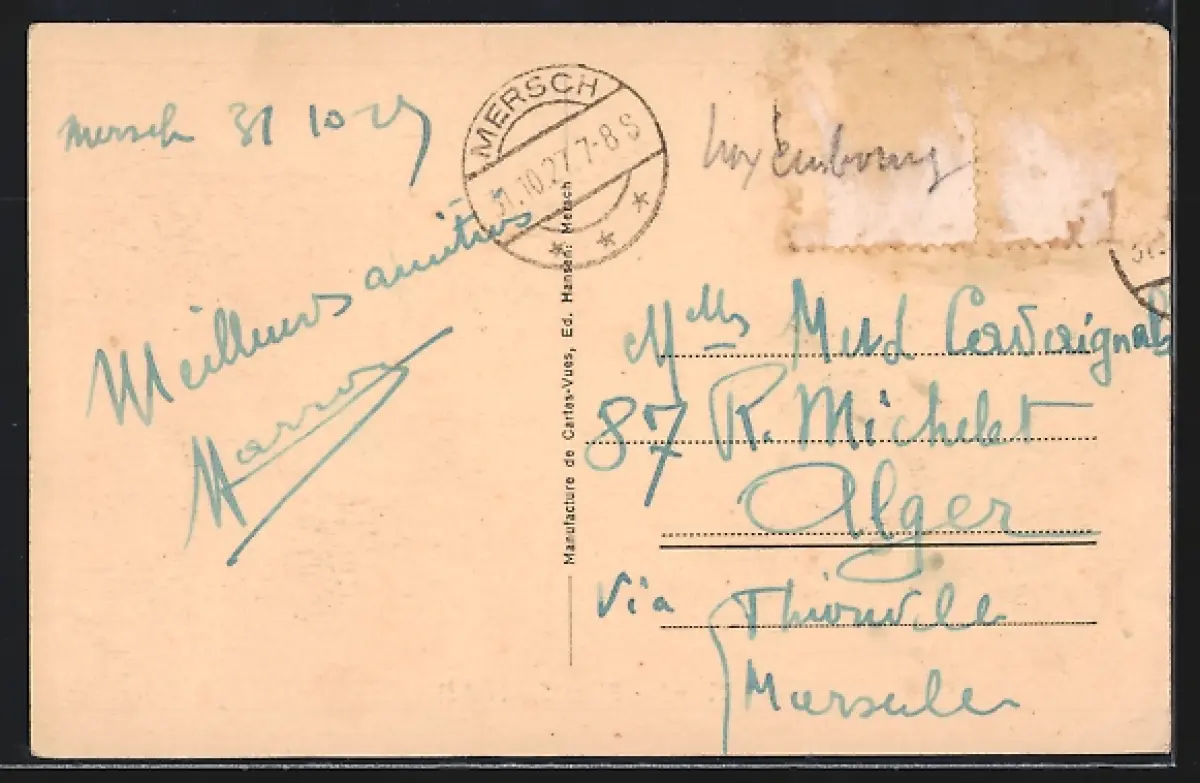 Mersch 31 10 27
Meilleurs amitiés
MERSCH
31.10.27.7-8 S
* * *
Manufacture de Cartes-Vues, Ed. Hansen: Mersch
Luxembourg
31.
Mlles
87 R. Michelet
Alger
Via Thionville
Marseille